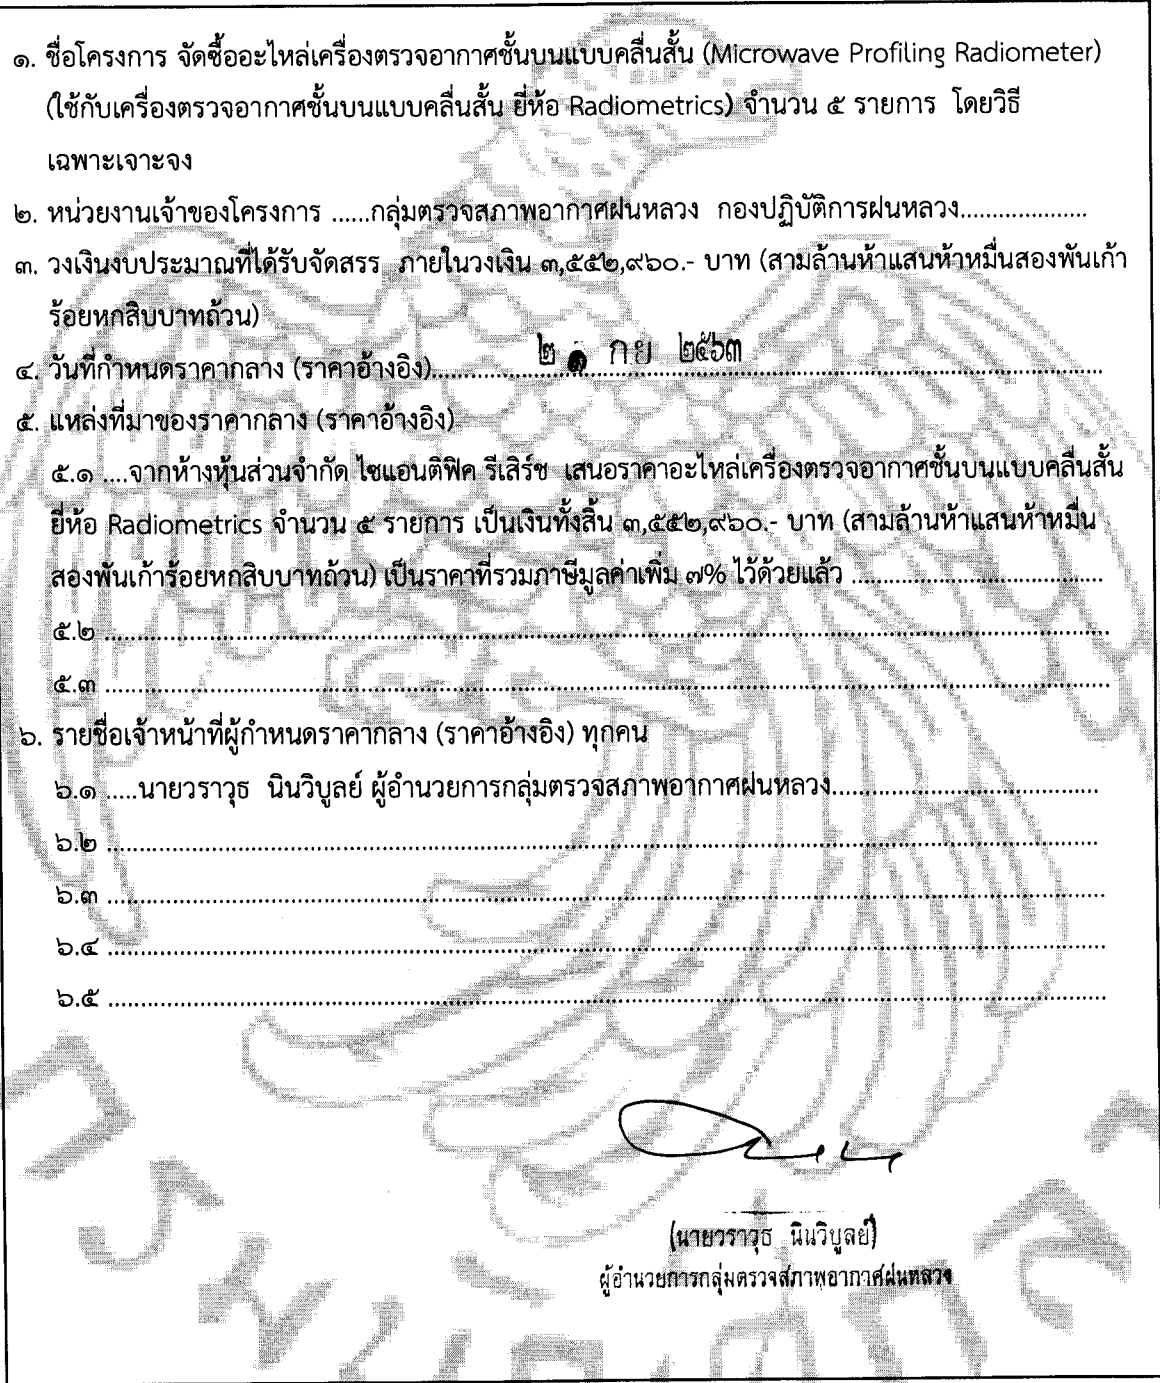 ๑. ชื่อโครงการ จัดซื้ออะไหล่เครื่องตรวจอากาศชั้นบนแบบคลื่นสั้น (Microwave Profiling Radiometer)
(ใช้กับเครื่องตรวจอากาศชั้นบนแบบคลื่นสั้น ยี่ห้อ Radiometrics) จำนวน ๕ รายการ โดยวิธี
เฉพาะเจาะจง
๒. หน่วยงานเจ้าของโครงการ ......กลุ่มตรวจสภาพอากาศฝนหลวง กองปฏิบัติการฝนหลวง....................
๓. วงเงินงบประมาณที่ได้รับจัดสรร ภายในวงเงิน ๓,๕๕๒,๙๖๐.- บาท (สามล้านห้าแสนห้าหมื่นสองพันเก้า
ร้อยหกสิบบาทถ้วน)
๔. วันที่กำหนดราคากลาง (ราคาอ้างอิง)..................๒ ๑ กย ๒๕๖๓..................
๕. แหล่งที่มาของราคากลาง (ราคาอ้างอิง)
๕.๑ ....จากห้างหุ้นส่วนจำกัด ไซแอนติฟิค รีเสิร์ช เสนอราคาอะไหล่เครื่องตรวจอากาศชั้นบนแบบคลื่นสั้น
ยี่ห้อ Radiometrics จำนวน ๕ รายการ เป็นเงินทั้งสิ้น ๓,๕๕๒,๙๖๐.- บาท (สามล้านห้าแสนห้าหมื่น
สองพันเก้าร้อยหกสิบบาทถ้วน) เป็นราคาที่รวมภาษีมูลค่าเพิ่ม ๗% ไว้ด้วยแล้ว ....................
๕.๒ ....................
๕.๓ ....................
๖. รายชื่อเจ้าหน้าที่ผู้กำหนดราคากลาง (ราคาอ้างอิง) ทุกคน
๖.๑ .....นายวราวุธ นินวิบูลย์ ผู้อำนวยการกลุ่มตรวจสภาพอากาศฝนหลวง....................
๖.๒ ....................
๖.๓ ....................
๖.๔ ....................
๖.๕ ....................
(นายวราวุธ นินวิบูลย์)
ผู้อำนวยการกลุ่มตรวจสภาพอากาศฝนหลวง